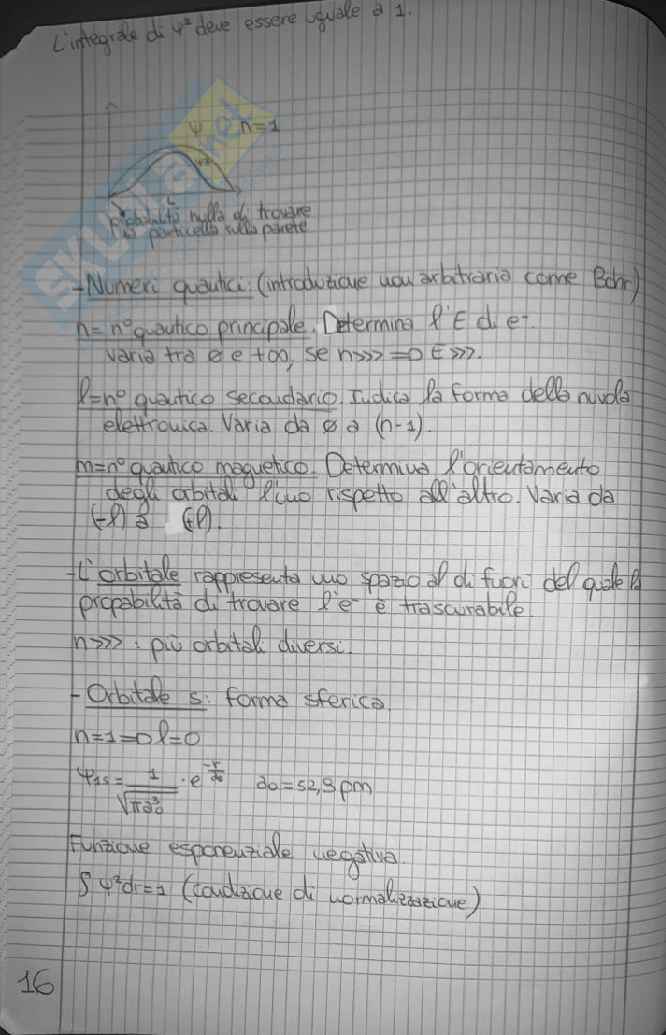 L'integrale di ψ² deve essere uguale a 1.
ψ n=1
Probabilità nulla di trovare
la particella sulla parete
- Numeri quantici: (introduzione non arbitraria come Bohr)
n=n° quantico principale. Determina l'E di e-
varia tra 0 e +∞, se n>>> => E >>>.
l=n° quantico secondario. Indica la forma della nuvola
elettronica. Varia da 0 a (n-1).
m=n° quantico magnetico. Determina l'orientamento
degli orbitali l'uno rispetto all'altro. Varia da
(-l) a (+l).
- L'orbitale rappresenta uno spazio al di fuori del quale la
probabilità di trovare l'e- è trascurabile.
n>>> : più orbitali diversi.
- Orbitale s: forma sferica.
n=1 => l=0
ψ1s = 1/√πa₀³ · e^(-r/a₀) a₀=52,9 pm
Funzione esponenziale negativa.
∫ψ²dr=1 (condizione di normalizzazione)
16
SKUOLA.net